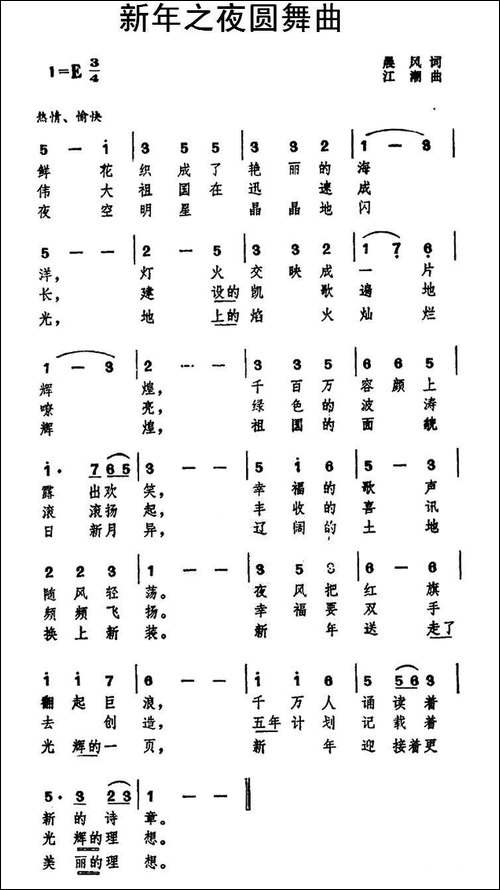 新年之夜圆舞曲
1=E 3/4
晨风 词
江潮 曲
热情、愉快
5 — i | 3 5 5 | 3 5 5 | 1 — 3 |
鲜 花 织 成 了 艳 丽 的 海
伟 大 祖 国 在 迅 速 成
夜 空 明 星 晶 晶 地 闪
5 — — | 2 — 5 | 3 3 2 | 1 7 6 |
洋， 灯 火 交 映 成 一 片
长， 建 设的 凯 歌 遍 地
光， 地 上的 焰 火 灿 烂
1 — 3 | 2 — — | 3 3 5 | 6 6 5 |
辉 煌， 千 百 万 容 颜 上
嘹 亮， 绿 色 的 波 涛
辉 煌， 祖 国 的 面 貌
i· 7 6 5 | 3 — — | 5 i 6 | 5 — 3 |
露 出 欢 笑， 幸 福 的 歌 声
滚 滚 扬 起， 丰 收 的 喜 讯
日 新 月 异， 辽 阔 的 土 地
2 2 3 | 1 — — | 3 5 | 6 — 6 |
随 风 轻 荡。 夜 风 把 红 旗
频 频 飞 扬。 幸 福 要 双 手
换 上 新 装。 新 年 送 走了
i i 7 | 6 — — | i i 6 | 5 5 6 3 |
翻 起 巨 浪， 千 万 人 诵 读 着
去 创 造， 五年 计 划 记 载 着
光 辉的 一 页， 新 年 迎 接着 更
5· 3 2 3 | 1 — — ‖
新 的 诗 章。
光 辉的 理 想。
美 丽的 理 想。